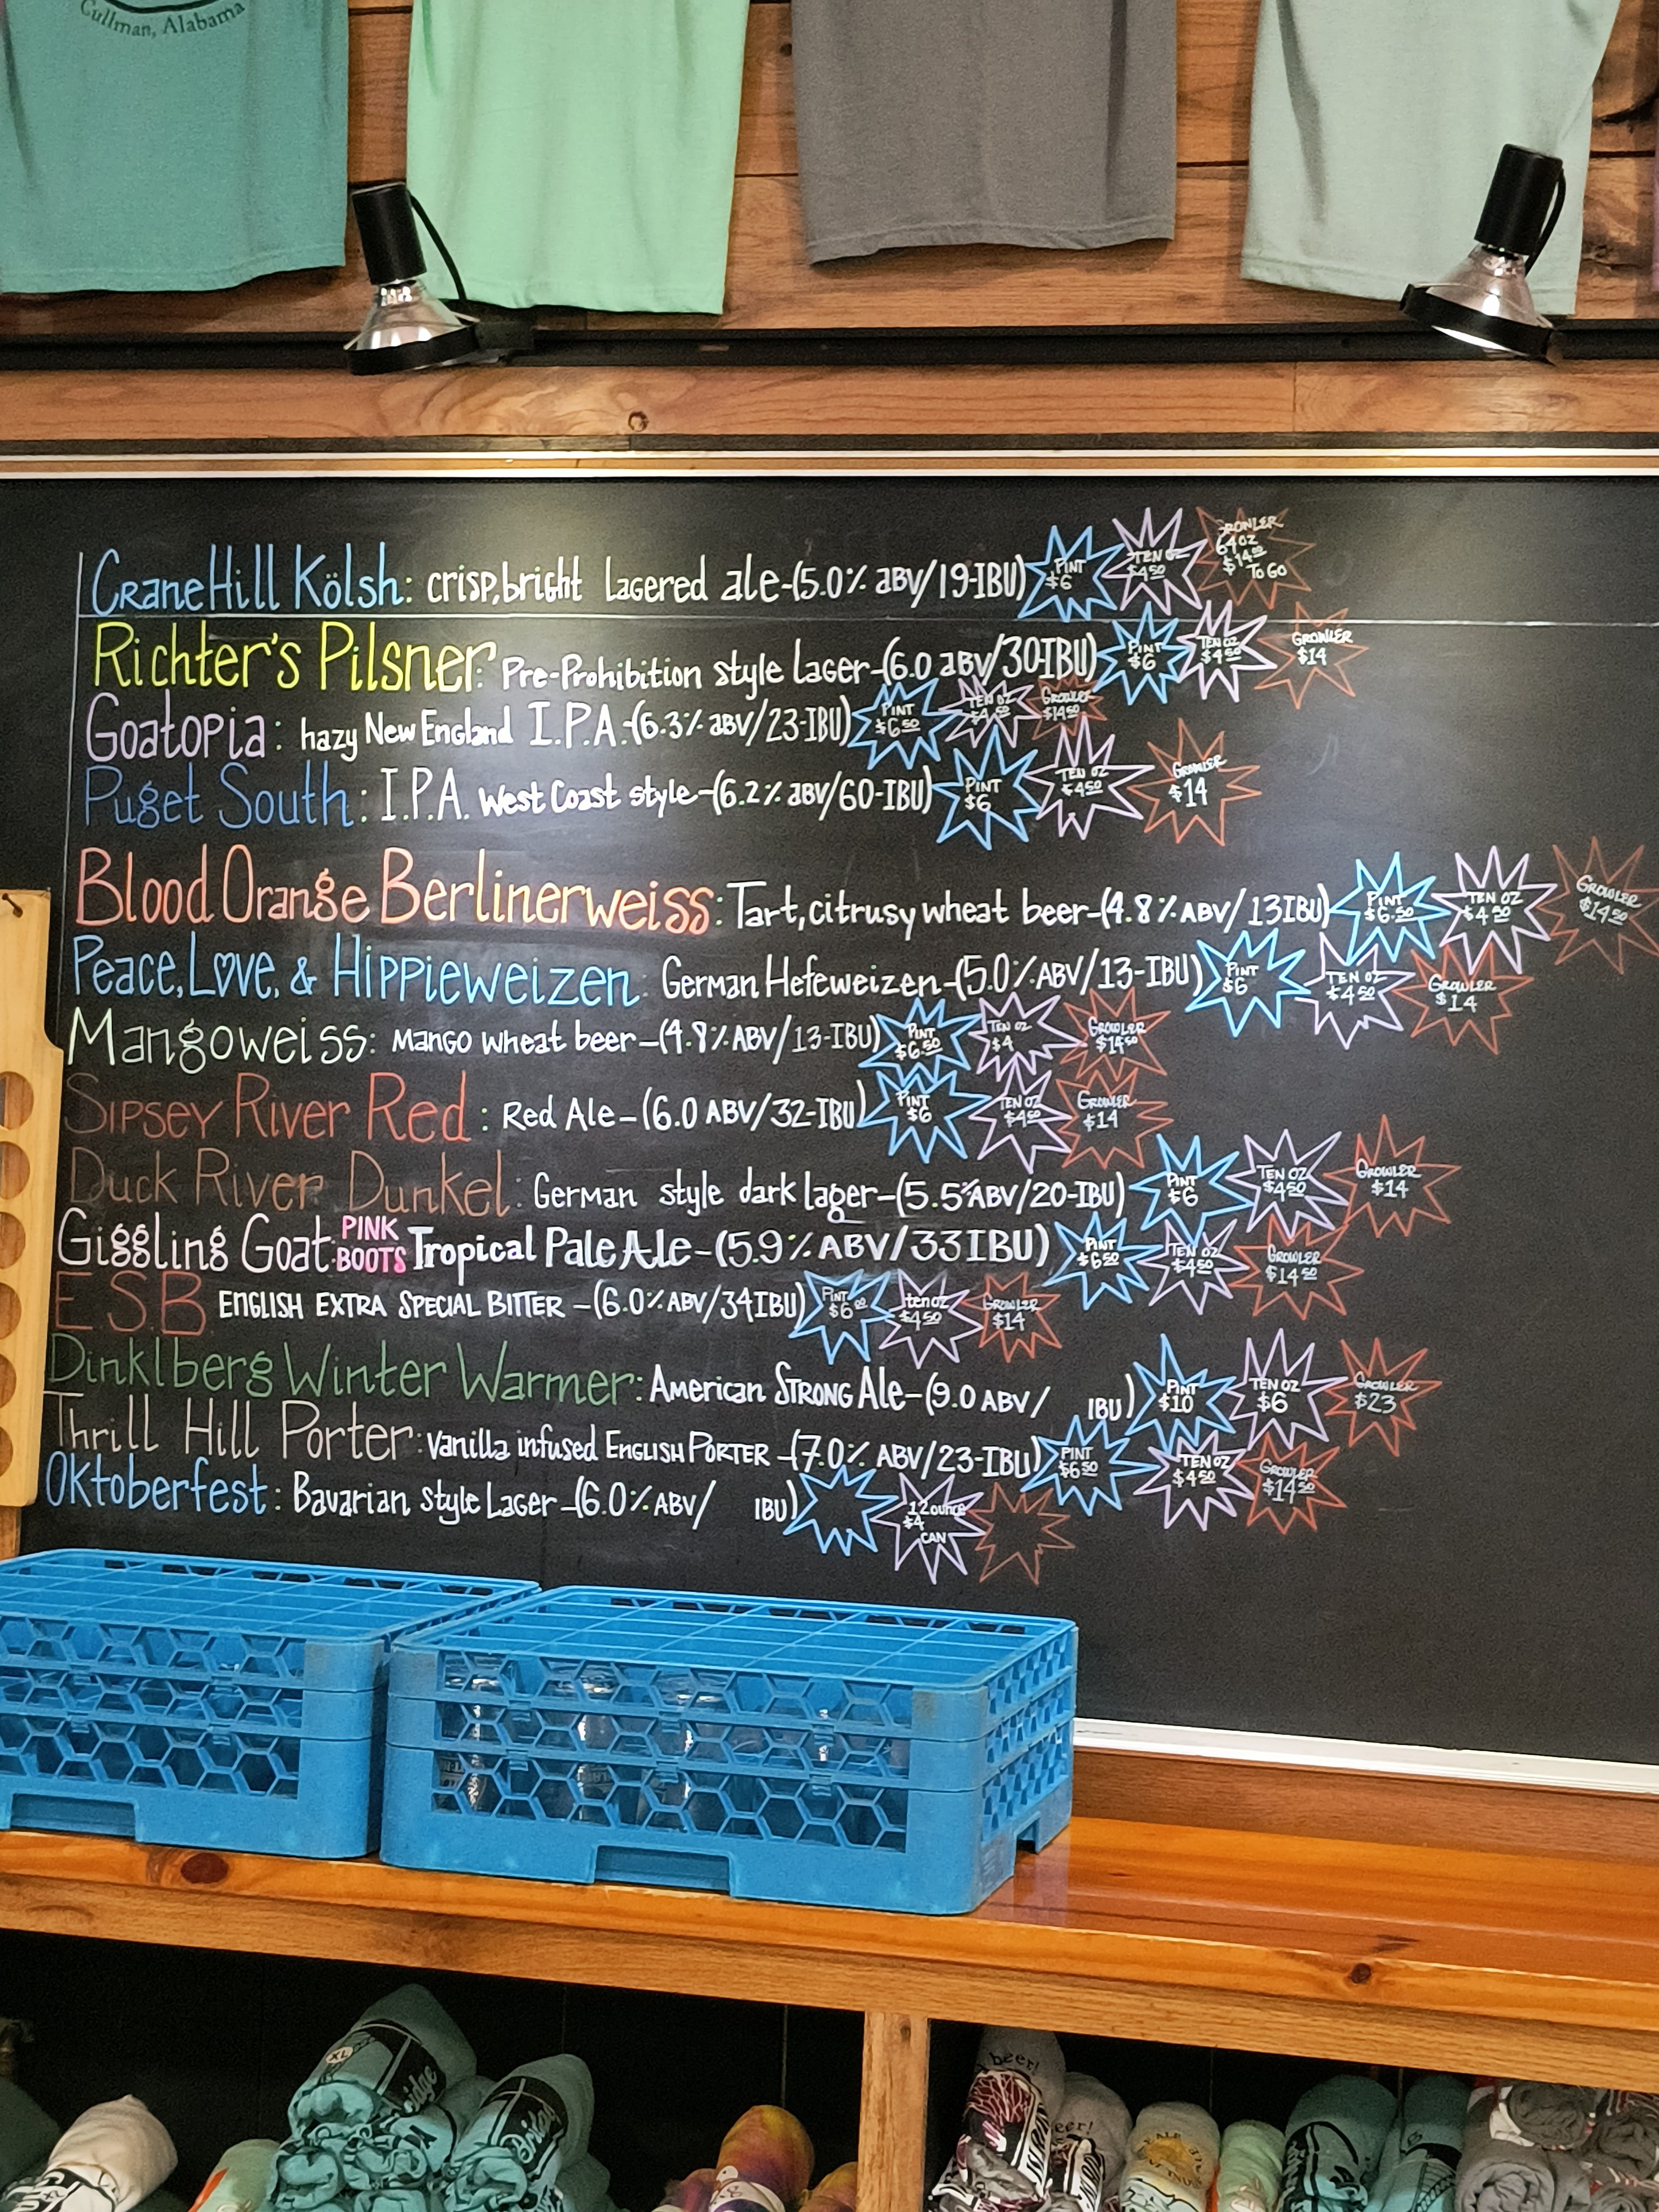 Cullman, Alabama
Crane Hill Kölsh: crisp, bright lagered ale-(5.0% ABV/19-IBU) PINT $6 TEN OZ $4.50 GROWLER 64 OZ $14.00 TO GO
Richter's Pilsner: Pre-Prohibition style lager-(6.0 ABV/30-IBU) PINT $6 TEN OZ $4.50 GROWLER $14
Goatopia: hazy New England I.P.A.-(6.3% ABV/23-IBU) PINT $6.50 TEN OZ $4.50 GROWLER $14.50
Puget South: I.P.A. West Coast style-(6.2% ABV/60-IBU) PINT $6 TEN OZ $4.50 GROWLER $14
Blood Orange Berlinerweiss: Tart, citrusy wheat beer-(4.8% ABV/13IBU) PINT $6.50 TEN OZ $4.50 GROWLER $14.50
Peace, Love, & Hippieweizen: German Hefeweizen-(5.0% ABV/13-IBU) PINT $6 TEN OZ $4.50 GROWLER $14
Mangoweiss: Mango wheat beer-(4.8% ABV/13-IBU) PINT $6.50 TEN OZ $4 GROWLER $14.50
Sipsey River Red: Red Ale-(6.0 ABV/32-IBU) PINT $6 TEN OZ $4.50 GROWLER $14
Duck River Dunkel: German style dark lager-(5.5% ABV/20-IBU) PINT $6 TEN OZ $4.50 GROWLER $14
Giggling Goat: PINK BOOTS Tropical Pale Ale-(5.9% ABV/33IBU) PINT $6.50 TEN OZ $4.50 GROWLER $14.50
E.S.B. ENGLISH EXTRA SPECIAL BITTER-(6.0% ABV/34IBU) PINT $6.00 ten oz $4.50 GROWLER $14
Dinklberg Winter Warmer: American Strong Ale-(9.0 ABV/ IBU) PINT $10 TEN OZ $6 GROWLER $23
Thrill Hill Porter: Vanilla infused English Porter-(7.0% ABV/23-IBU) PINT $6.50 TEN OZ $4.50 GROWLER $14.50
Oktoberfest: Bavarian style Lager-(6.0% ABV/ IBU) 12 ounce $4 CAN
XL
beer!